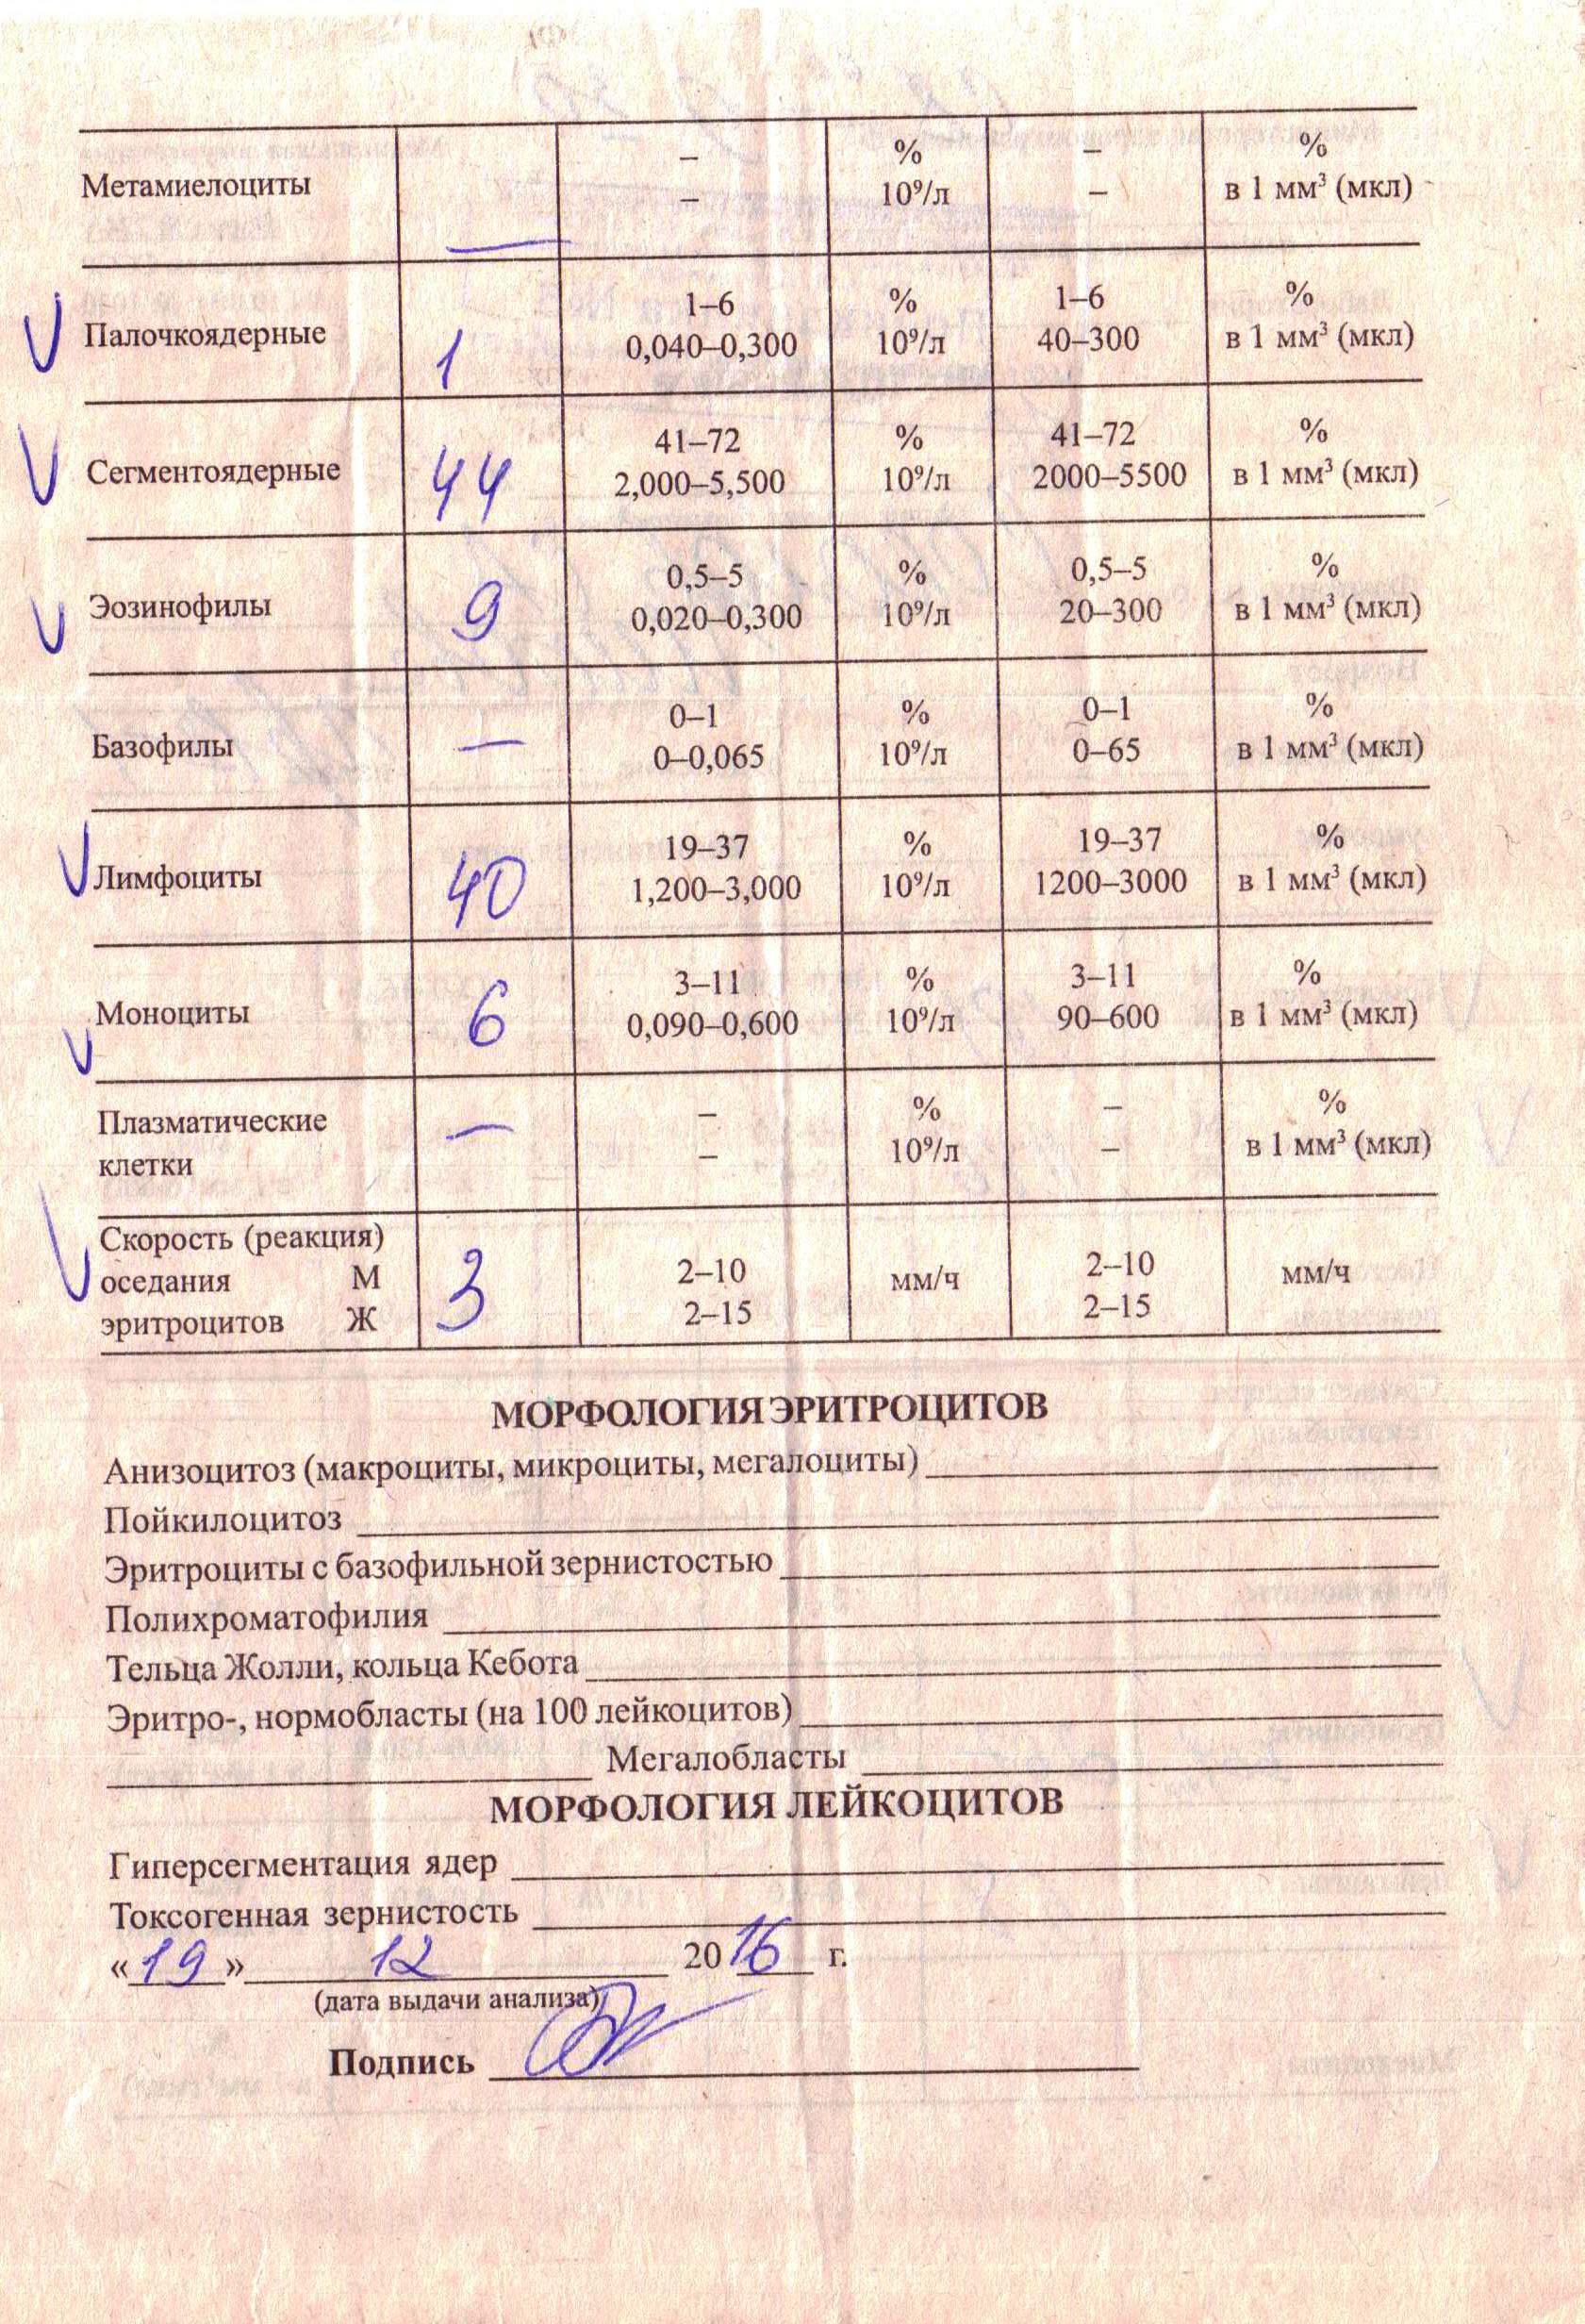 – % – %
Метамиелоциты – 10⁹/л – в 1 мм³ (мкл)
—
1–6 % 1–6 %
Палочкоядерные 1 0,040–0,300 10⁹/л 40–300 в 1 мм³ (мкл)
41–72 % 41–72 %
Сегментоядерные 44 2,000–5,500 10⁹/л 2000–5500 в 1 мм³ (мкл)
0,5–5 % 0,5–5 %
Эозинофилы 9 0,020–0,300 10⁹/л 20–300 в 1 мм³ (мкл)
0–1 % 0–1 %
Базофилы — 0–0,065 10⁹/л 0–65 в 1 мм³ (мкл)
19–37 % 19–37 %
Лимфоциты 40 1,200–3,000 10⁹/л 1200–3000 в 1 мм³ (мкл)
3–11 % 3–11 %
Моноциты 6 0,090–0,600 10⁹/л 90–600 в 1 мм³ (мкл)
Плазматические — – % – %
клетки – 10⁹/л – в 1 мм³ (мкл)
Скорость (реакция)
оседания М 3 2–10 мм/ч 2–10 мм/ч
эритроцитов Ж 2–15 2–15
МОРФОЛОГИЯ ЭРИТРОЦИТОВ
Анизоцитоз (макроциты, микроциты, мегалоциты)
Пойкилоцитоз
Эритроциты с базофильной зернистостью
Полихроматофилия
Тельца Жолли, кольца Кебота
Эритро-, нормобласты (на 100 лейкоцитов)
Мегалобласты
МОРФОЛОГИЯ ЛЕЙКОЦИТОВ
Гиперсегментация ядер
Токсогенная зернистость
«19» 12 2016 г.
(дата выдачи анализа)
Подпись